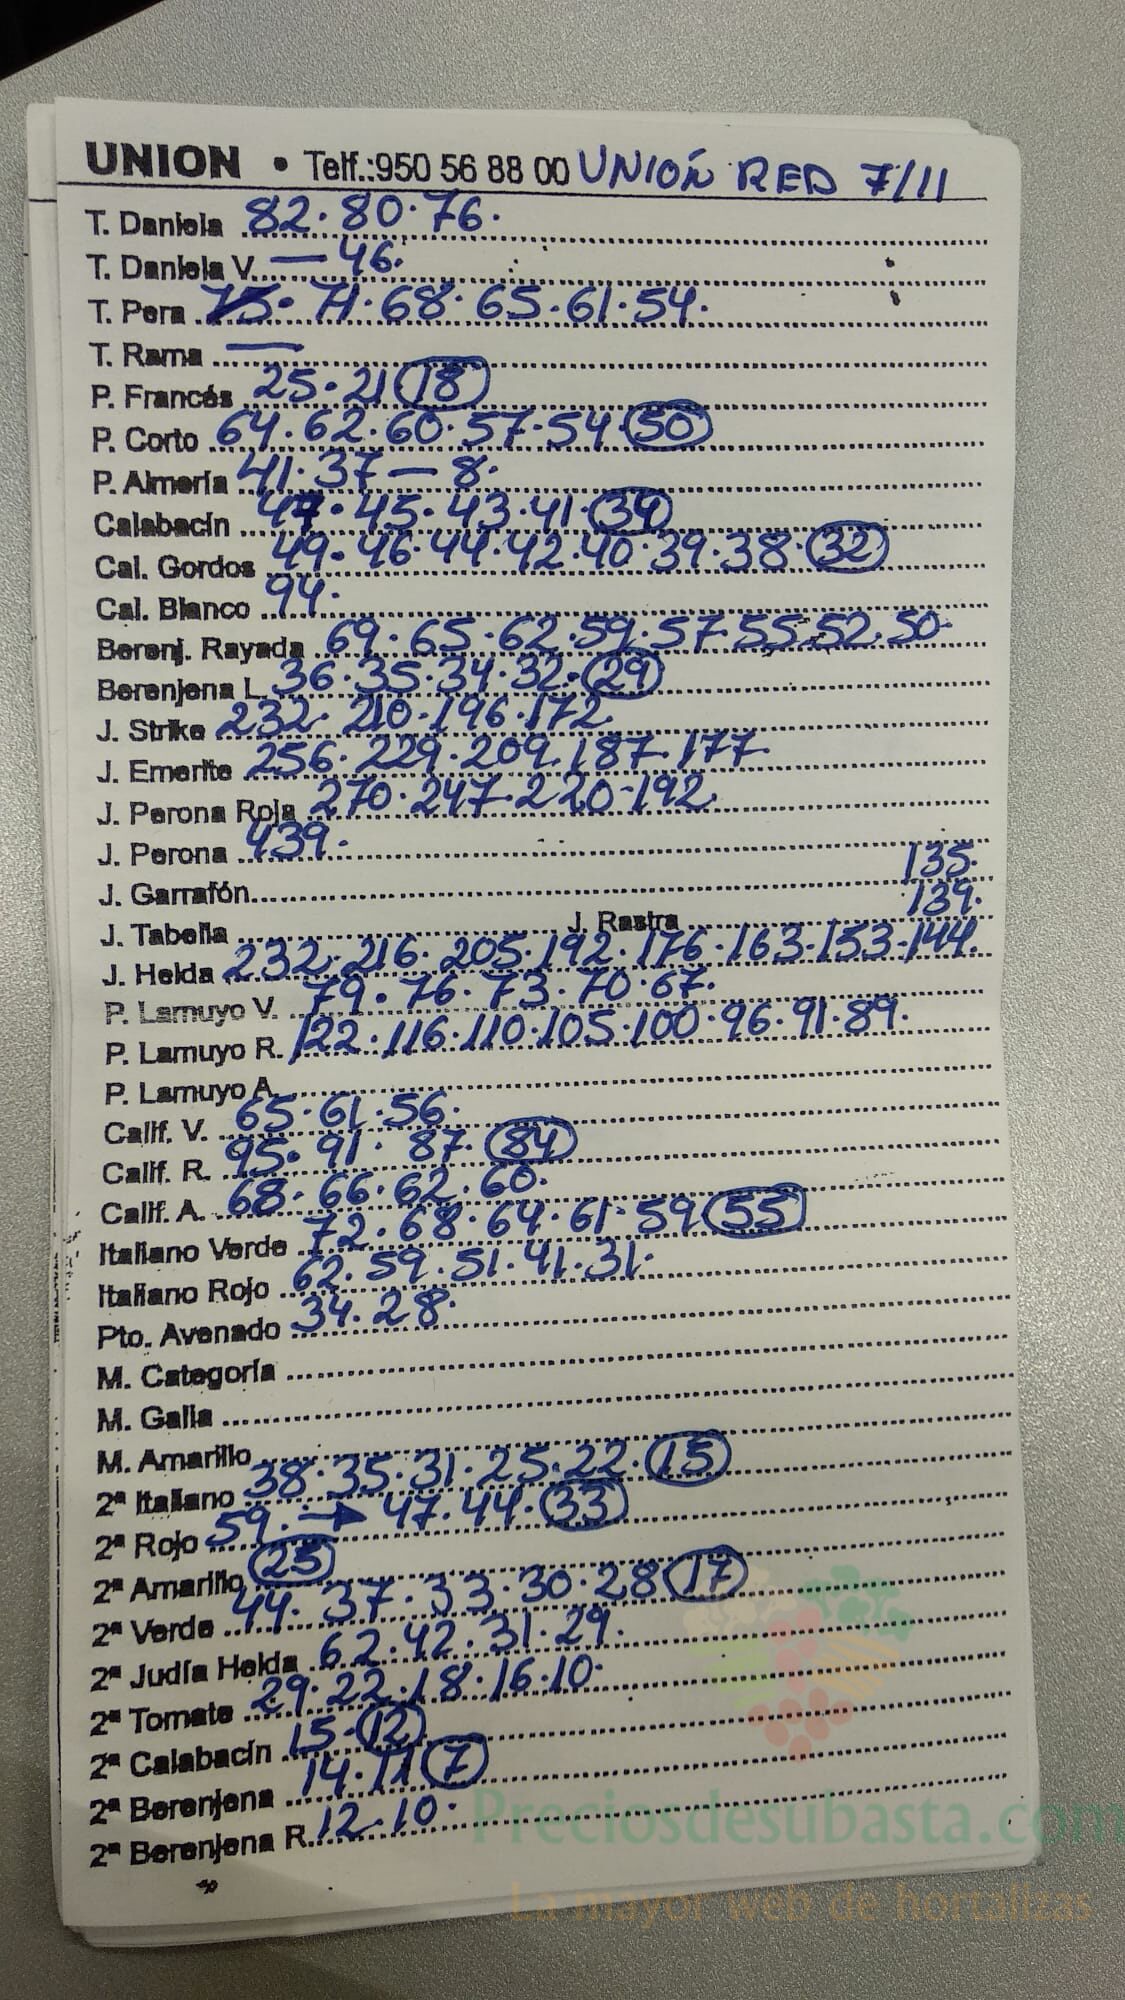 UNION • Telf.:950 56 88 00 UNIÓN RED 7/11
T. Daniela 82. 80. 76.
T. Daniela V. — 46.
T. Pera 75. 71. 68. 65. 61. 54.
T. Rama —
P. Francés 25. 21 18
P. Corto 64. 62. 60. 57. 54. 50
P. Almería 41. 37 — 8.
Calabacín 47. 45. 43. 41. 34
Cal. Gordos 49. 46. 44. 42. 40. 39. 38. 32
Cal. Blanco 94.
Berenj. Rayada 69. 65. 62. 59. 57. 55. 52. 50.
Berenjena L. 36. 35. 34. 32. 29
J. Strike 232. 210. 196. 172.
J. Emerite 256. 229. 209. 187. 177.
J. Perona Roja 270. 247. 220. 192.
J. Perona 439.
J. Garrafón 135.
J. Tabella J. Rastra 139.
J. Helda 232. 216. 205. 192. 176. 163. 153. 144.
P. Lamuyo V. 79. 76. 73. 70. 67.
P. Lamuyo R. 122. 116. 110. 105. 100. 96. 91. 89.
P. Lamuyo A.
Calif. V. 65. 61. 56.
Calif. R. 95. 91. 87. 84
Calif. A. 68. 66. 62. 60.
Italiano Verde 72. 68. 64. 61. 59 55
Italiano Rojo 62. 59. 51. 41. 31.
Pto. Avenado 34. 28.
M. Categoría
M. Galia
M. Amarillo
2ª Italiano 38. 35. 31. 25. 22. 15
2ª Rojo 59. → 47. 44. 33
2ª Amarillo 25
2ª Verde 44. 37. 33. 30. 28 17
2ª Judía Helda 62. 42. 31. 29.
2ª Tomate 29. 22. 18. 16. 10.
2ª Calabacín 15. 12
2ª Berenjena 14. 11 7
2ª Berenjena R. 12. 10.
Preciosdesubasta.com
La mayor web de hortalizas